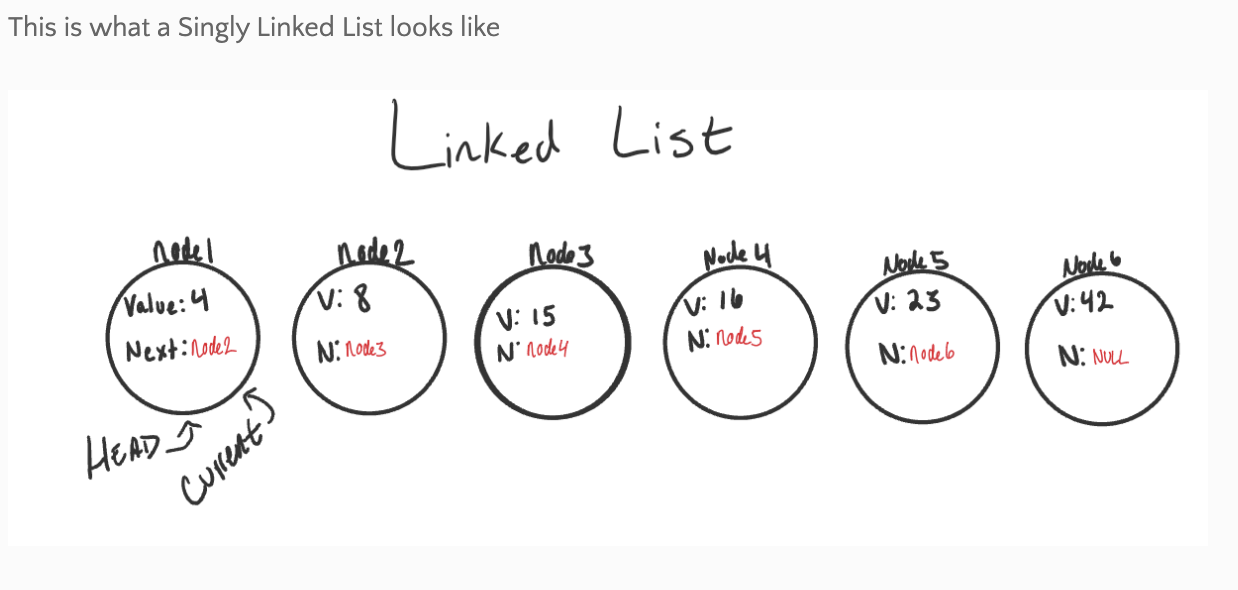 This is what a Singly Linked List looks like
Linked List
node1
Value: 4
Next: node2
node2
V: 8
N: node3
node3
V: 15
N: node4
Node 4
V: 16
N: node5
Node 5
V: 23
N: node6
Node 6
V: 42
N: NULL
HEAD
Current